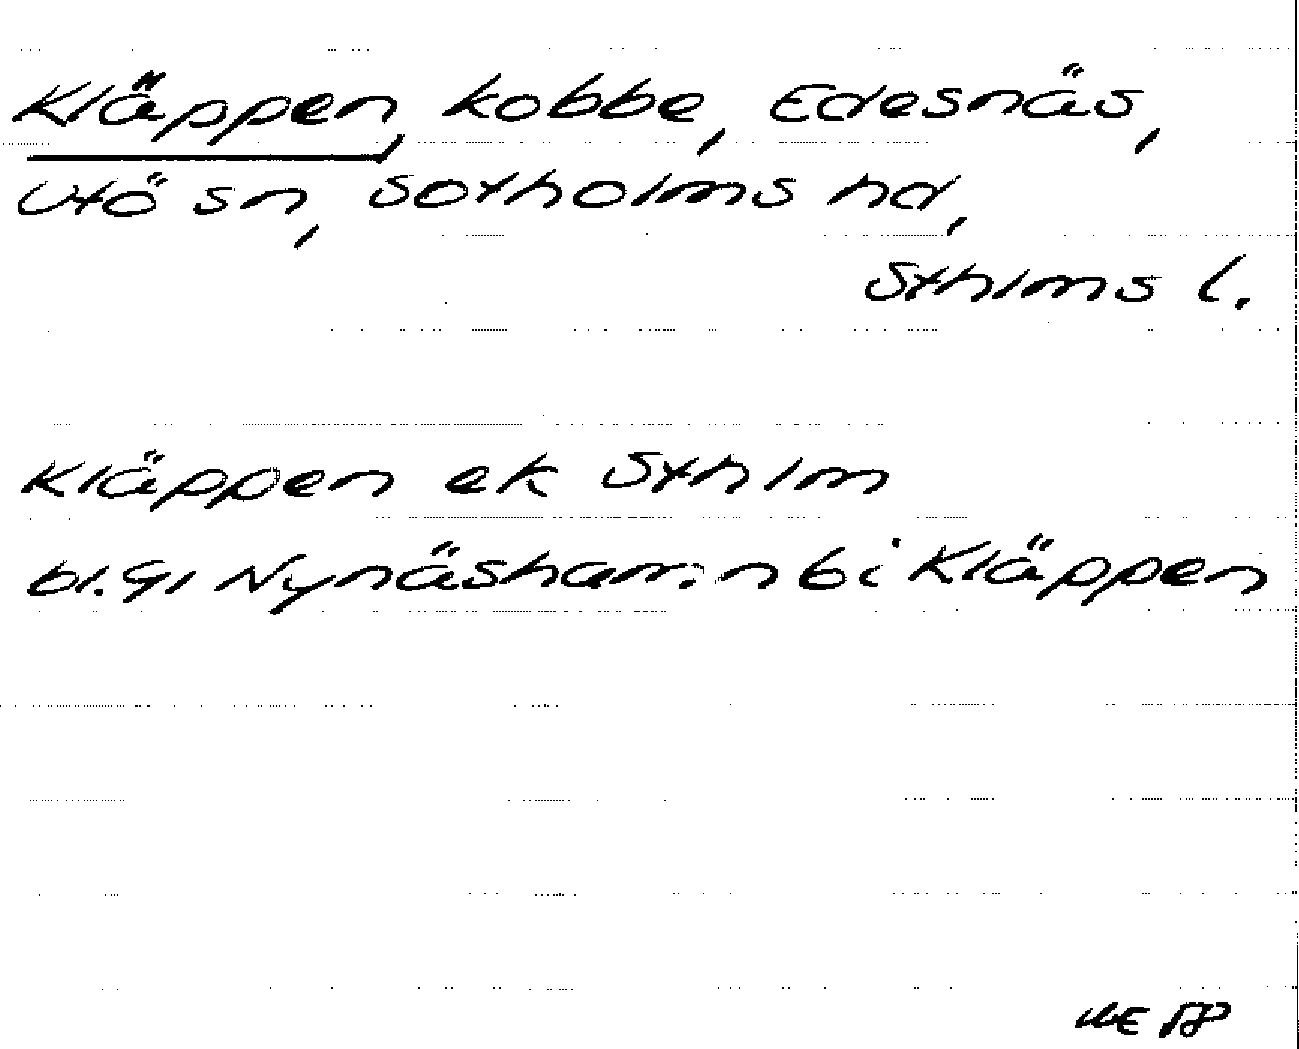 Kläppen, kobbe, Edesnäs,
Utö sn, Sotholms hd,
Sthlms l.
Kläppen ek Sthlm
bl. 91 Nynäshamn 6 i Kläppen